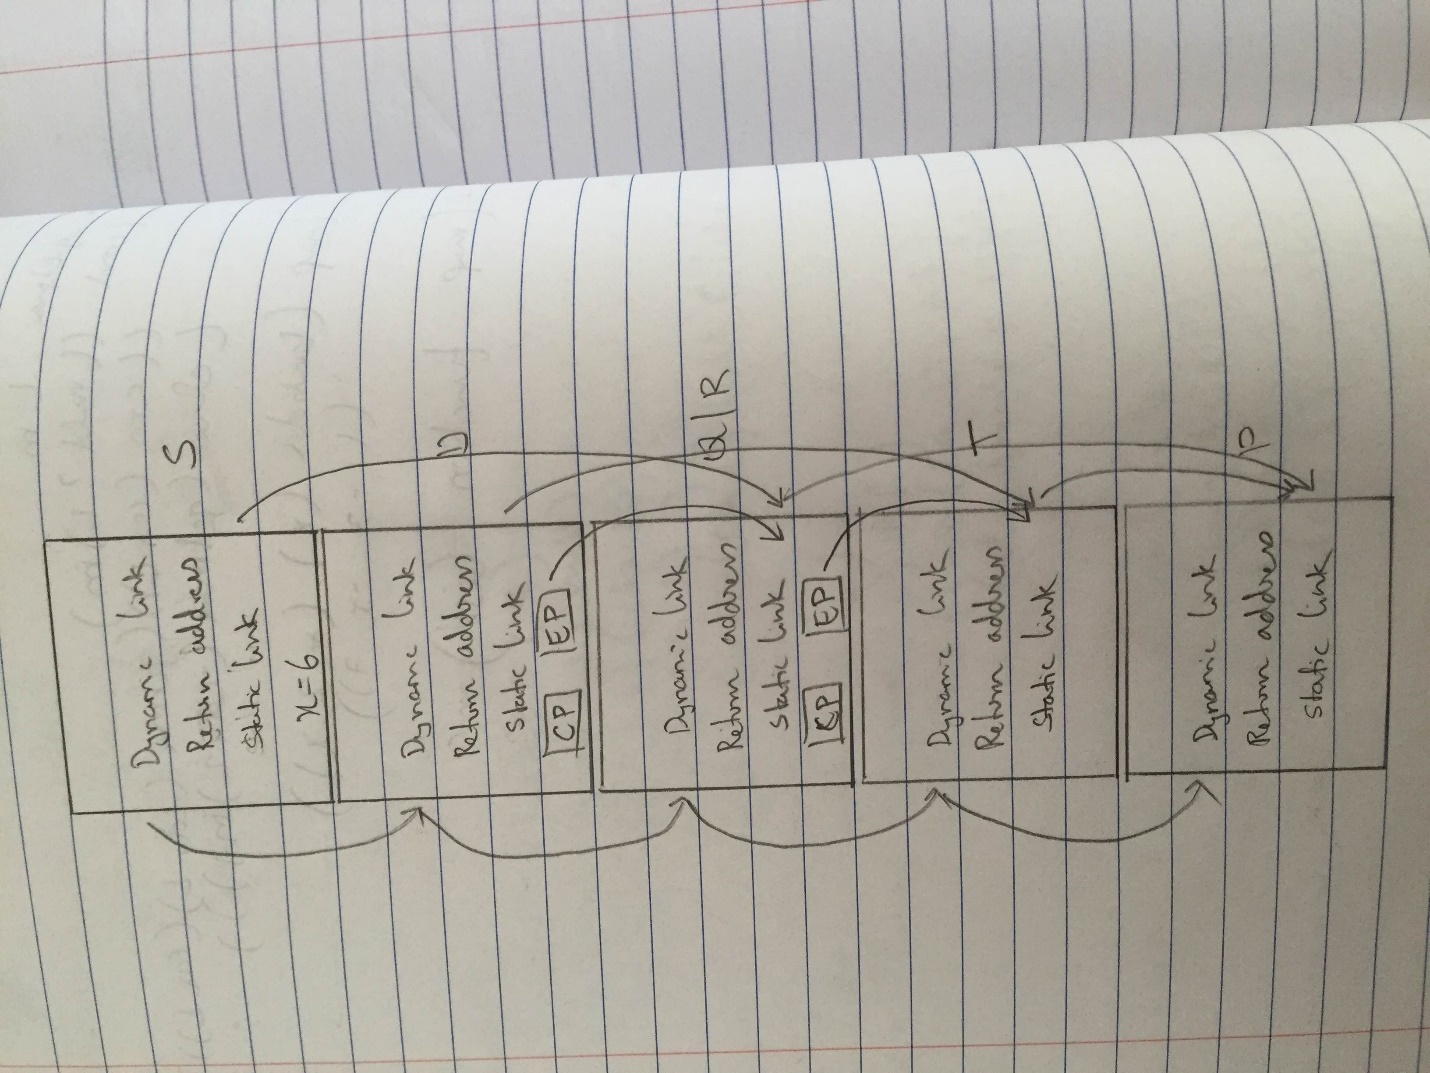 Dynamic link
Return address S
Static link
x=6
Dynamic link
Return address
static link
CP EP
Dynamic link
Return address Q|R
static link
CP EP
Dynamic link
Return address T
Static link
Dynamic link
Return address P
static link